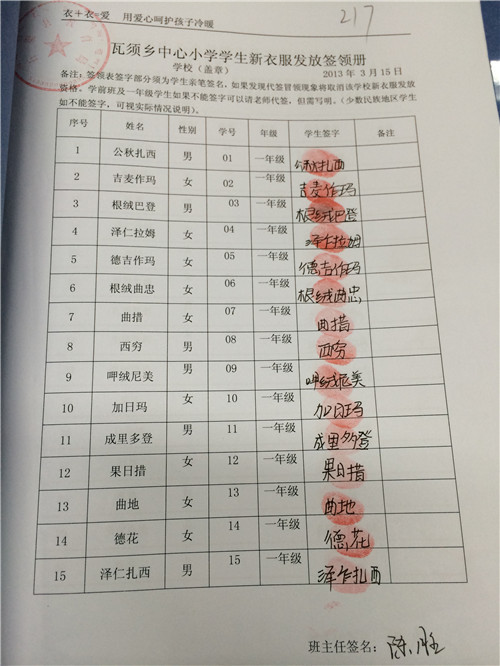 衣+衣=爱 用爱心呵护孩子冷暖
217
瓦须乡中心小学学生新衣服发放签领册
学校（盖章） 2013 年 3 月 15 日
备注：签领表签字部分须为学生亲笔签名，如果发现代签冒领现象将取消该学校新衣服发放
资格，学前班及一年级学生如果不能签字可以请老师代签，但需写明。（少数民族地区学生
如不能签字，可视实际情况说明）。
序号 姓名 性别 学号 年级 学生签字 备注
1 公秋扎西 男 01 一年级 公秋扎西
2 吉麦作玛 女 02 一年级 吉麦作玛
3 根绒巴登 男 03 一年级 根绒巴登
4 泽仁拉姆 女 04 一年级 泽仁拉姆
5 德吉作玛 女 05 一年级 德吉作玛
6 根绒曲忠 女 06 一年级 根绒曲忠
7 曲措 女 07 一年级 曲措
8 西穷 男 08 一年级 西穷
9 呷绒尼美 男 09 一年级 呷绒尼美
10 加日玛 女 10 一年级 加日玛
11 成里多登 男 11 一年级 成里多登
12 果日措 女 12 一年级 果日措
13 曲地 女 13 一年级 曲地
14 德花 女 14 一年级 德花
15 泽仁扎西 男 15 一年级 泽仁扎西
班主任签名：陈